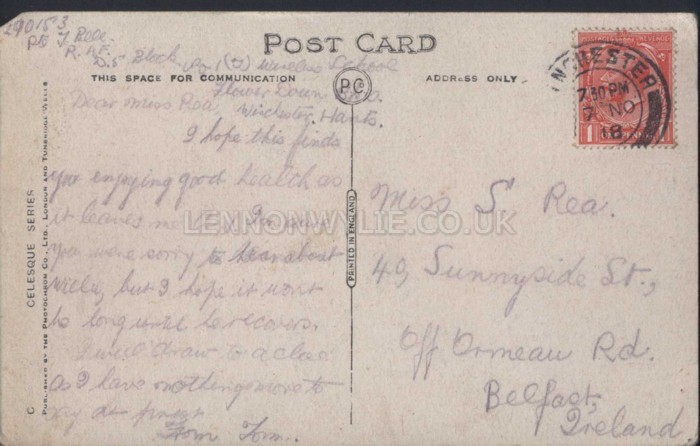 POST CARD
THIS SPACE FOR COMMUNICATION
ADDRESS ONLY
PC
290153
R.A.F.
D.5 Block (No 1 (T) Wireless School
Flower Down
Winchester, Hants.
Dear Miss Rea,
I hope this finds
you enjoying good health as
it leaves me
you were sorry to hear about
Willie, but I hope it wont
be long until he recovers.
I will draw to a close
as I have nothing more to
say at present
From Tom.
Miss S Rea.
49, Sunnyside St.,
Off Ormeau Rd.
Belfast,
Ireland.
7.30 PM
7 NO
18
PRINTED IN ENGLAND
C CELESQUE SERIES
PUBLISHED BY THE PHOTOCHROM CO., LTD., LONDON AND TUNBRIDGE WELLS
LENNONWYLIE.CO.UK